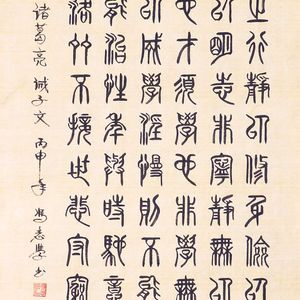 之行靜以修身儉以
以明志非寧靜無以
也才須學也非學無
以成學淫慢則不能
能治性年與時馳意
落多不接世悲守窮
諸葛亮 誡子文 丙申年 書